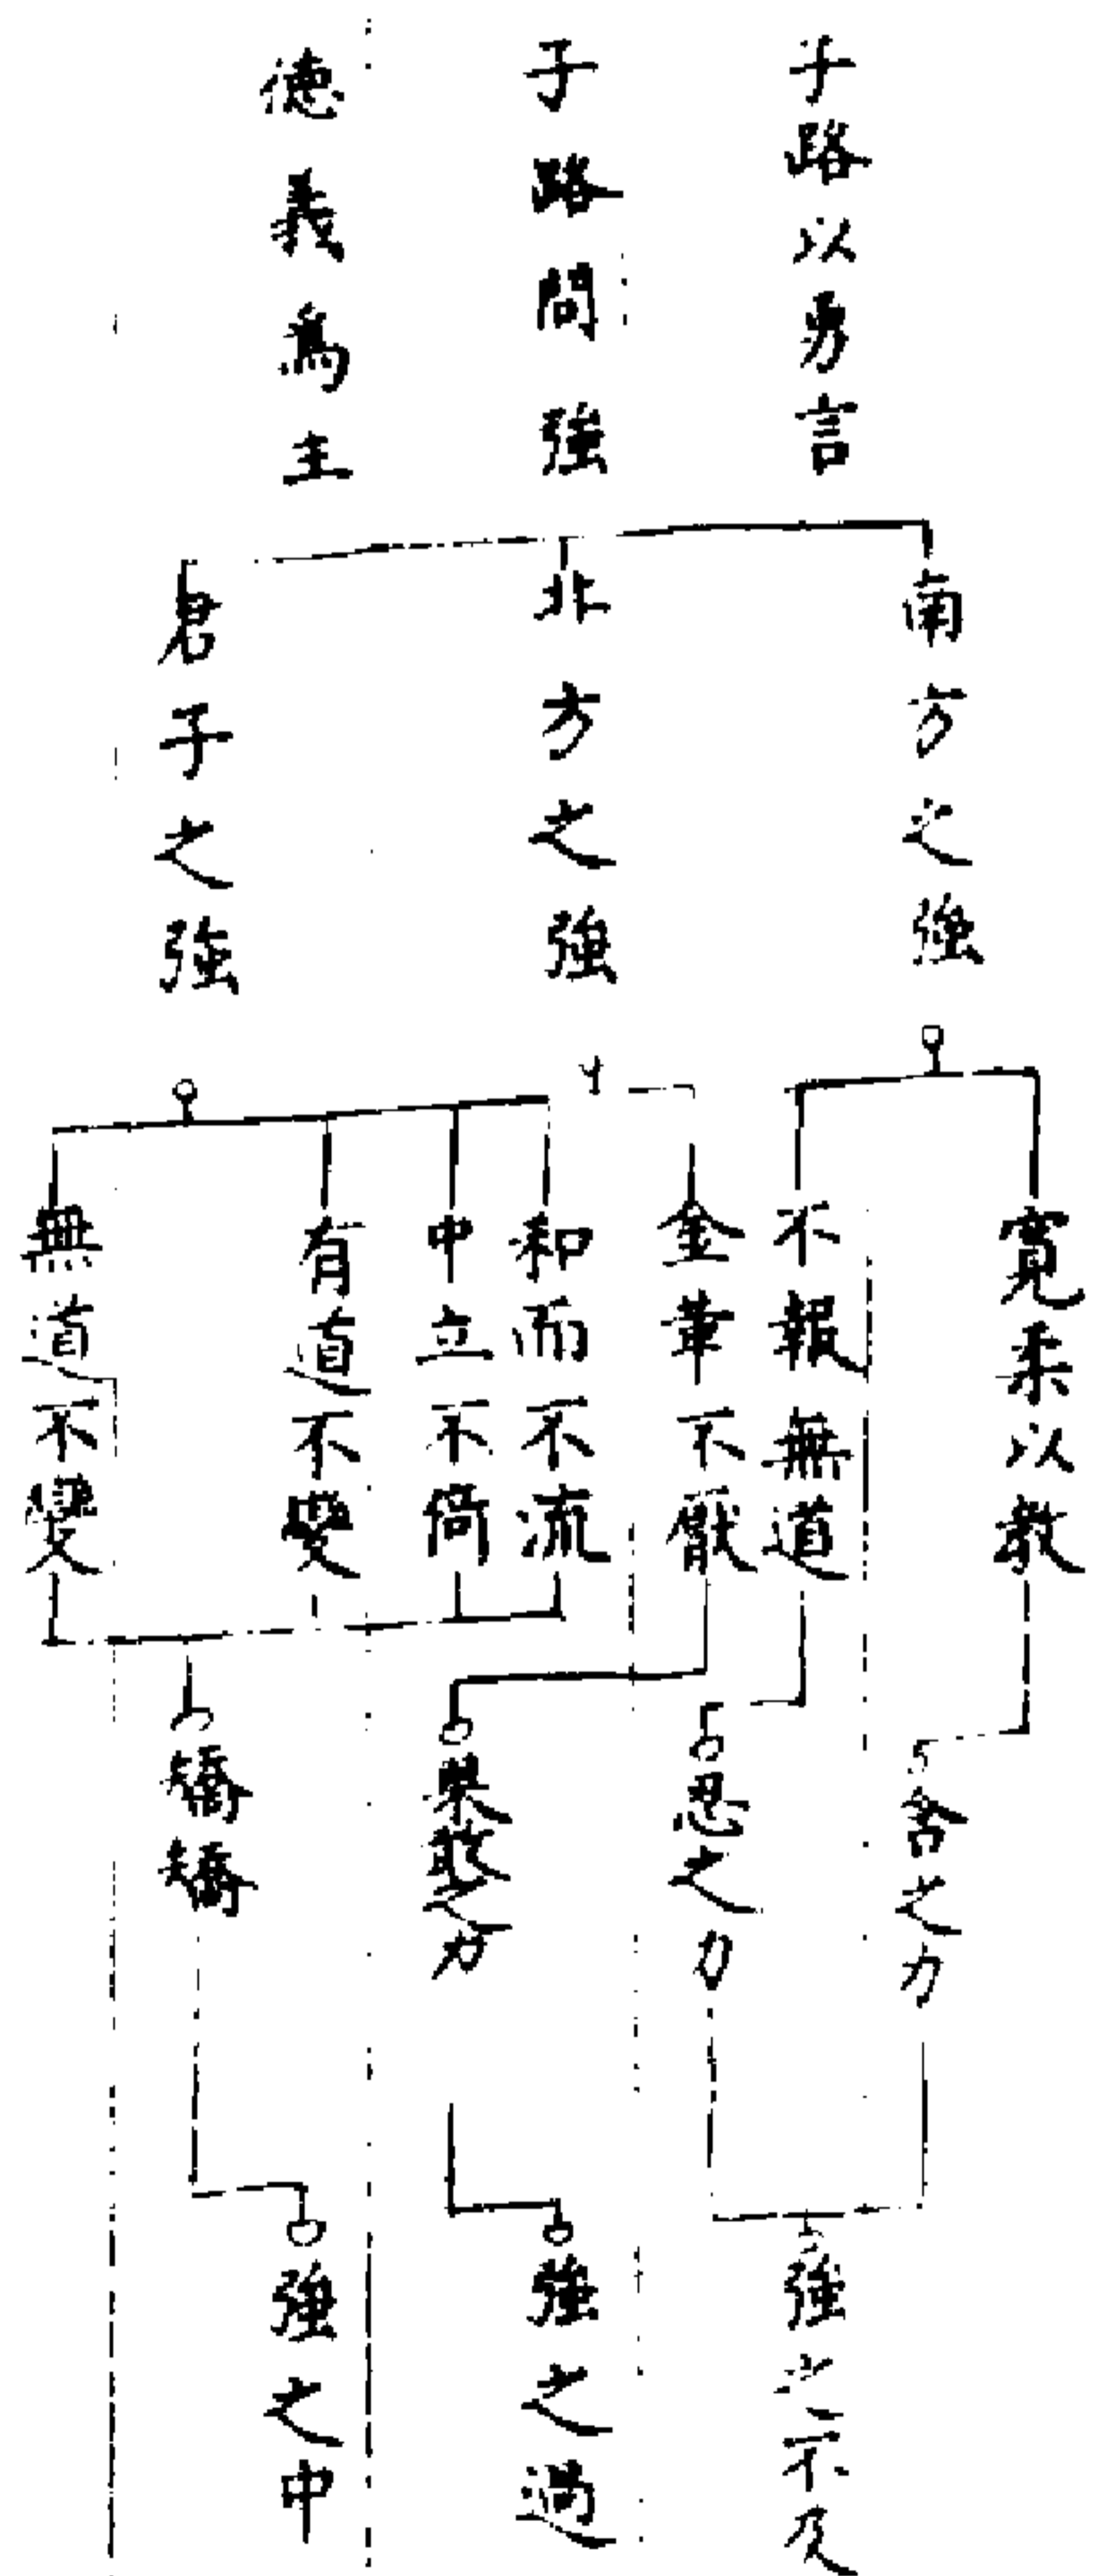 子路以勇言
子路問強
德義為主
南方之強
北方之強
君子之強
寬柔以教
不報無道
金革不厭
和而不流
中立不倚
有道不變
無道不變
含之力
忍之力
果敢之力
矯矯
強之不及
強之過
強之中